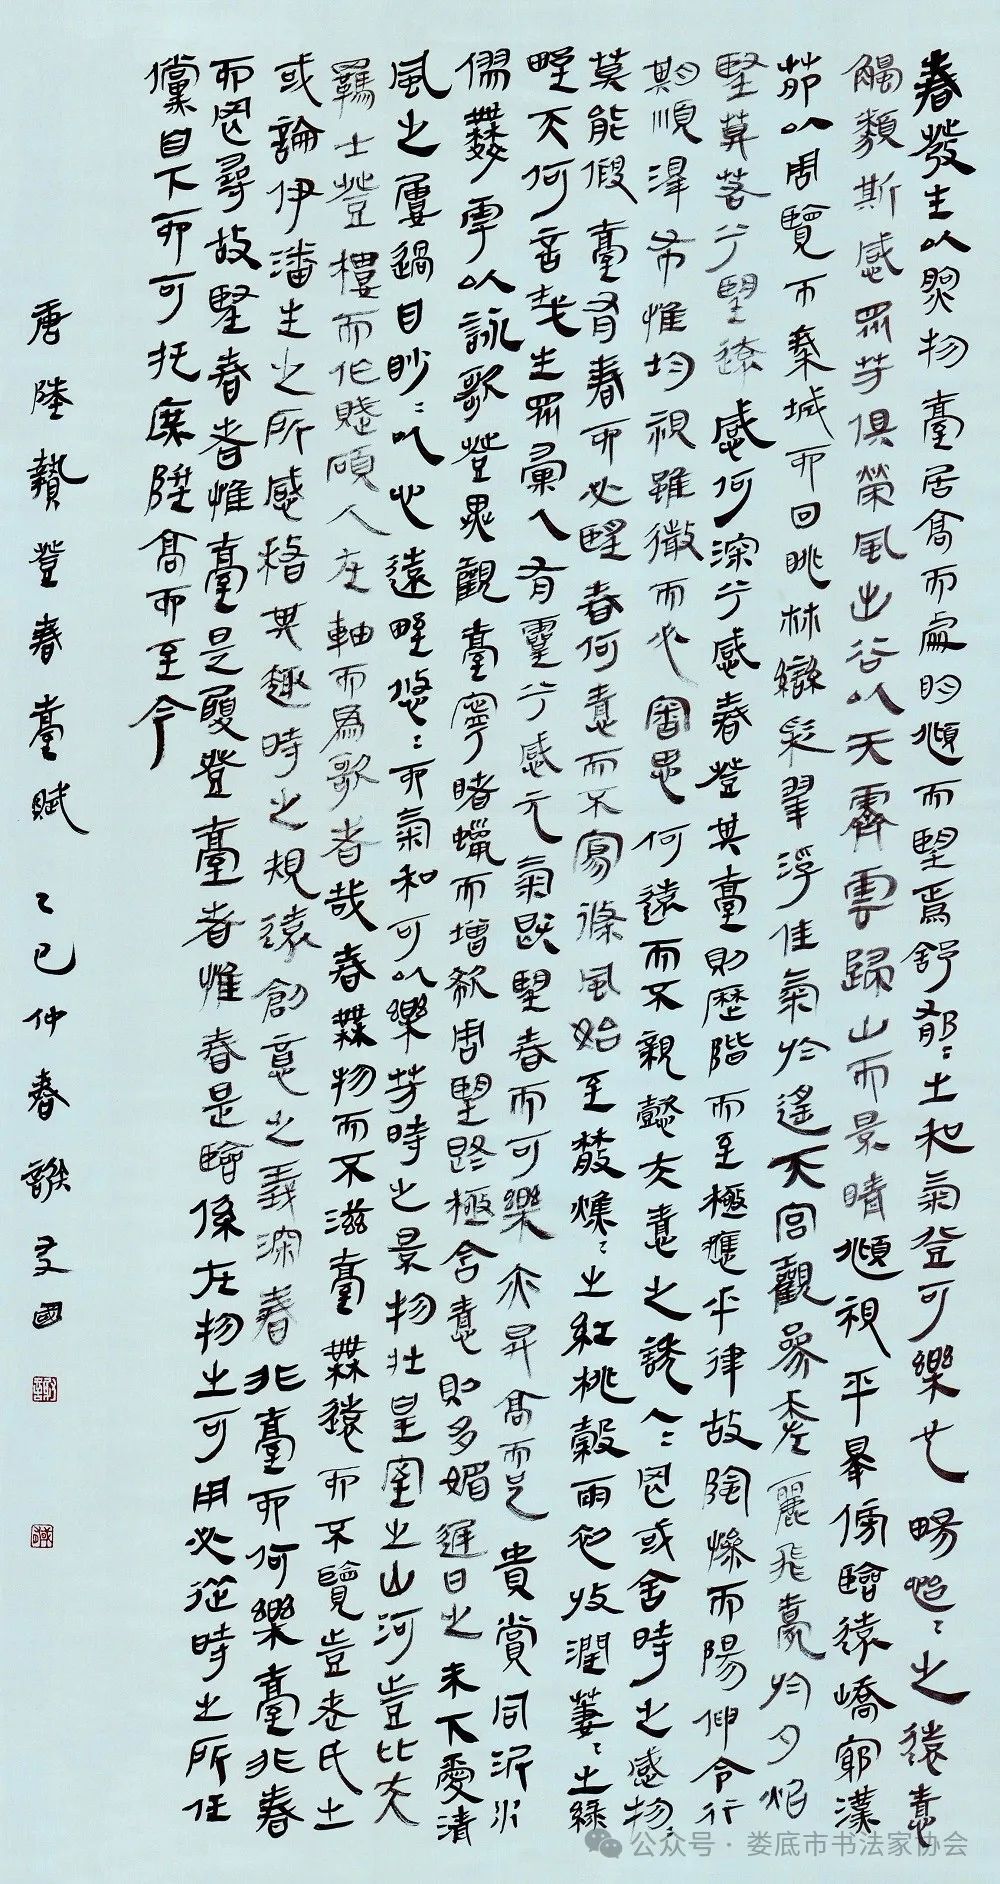 春發生以煦物臺居高而處明頫而望焉舒郁〻之和氣登可樂也暢怡〻之遠意
觸類斯感眾芳俱榮風出谷以天霽雲歸山而景晴頫視平皋傍瞻遠嶠窮漢
苑以周覽而秦城而回眺林巒彩翠浮佳氣於遙天宮觀參差麗飛甍於夕照
兮望遠感何深兮感春登其臺則歷階而至極應乎律故陶烝而陽伸令行
期順澤布惟均視雖微而必因思何遠而不親懿夫意之誘人〻因或舍時之感物〻
莫能假臺有春而必望春何意而不寫條風始至發燋〻之紅桃穀雨初收潤萋〻之綠
野天何言哉生眾彙人有靈兮感元氣既望春而可樂亦昇高而足貴賞同沂水
儒舞雩以詠歌登異觀臺寧睹蠟而增欷周望既極含意則多媚遲日之未下愛清
風之屢過目眇〻以心遠野悠〻而氣和可以樂芳時之景物壯皇室之山河豈比夫
羈士登樓而作賤碩人在軸而為歌者哉春無物而不滋臺無遠而不覽豈老氏之
或論伊潘生之所感稽其趣時之規遠創意之義深春非臺而何樂臺非春
而罔尋故望春者惟臺是履登臺者惟春是瞻係在物之可用必從時之所任
儻自下而可托庶陞高而至今
唐陸贄登春臺賦 乙巳仲春 國
公众号 · 娄底市书法家协会